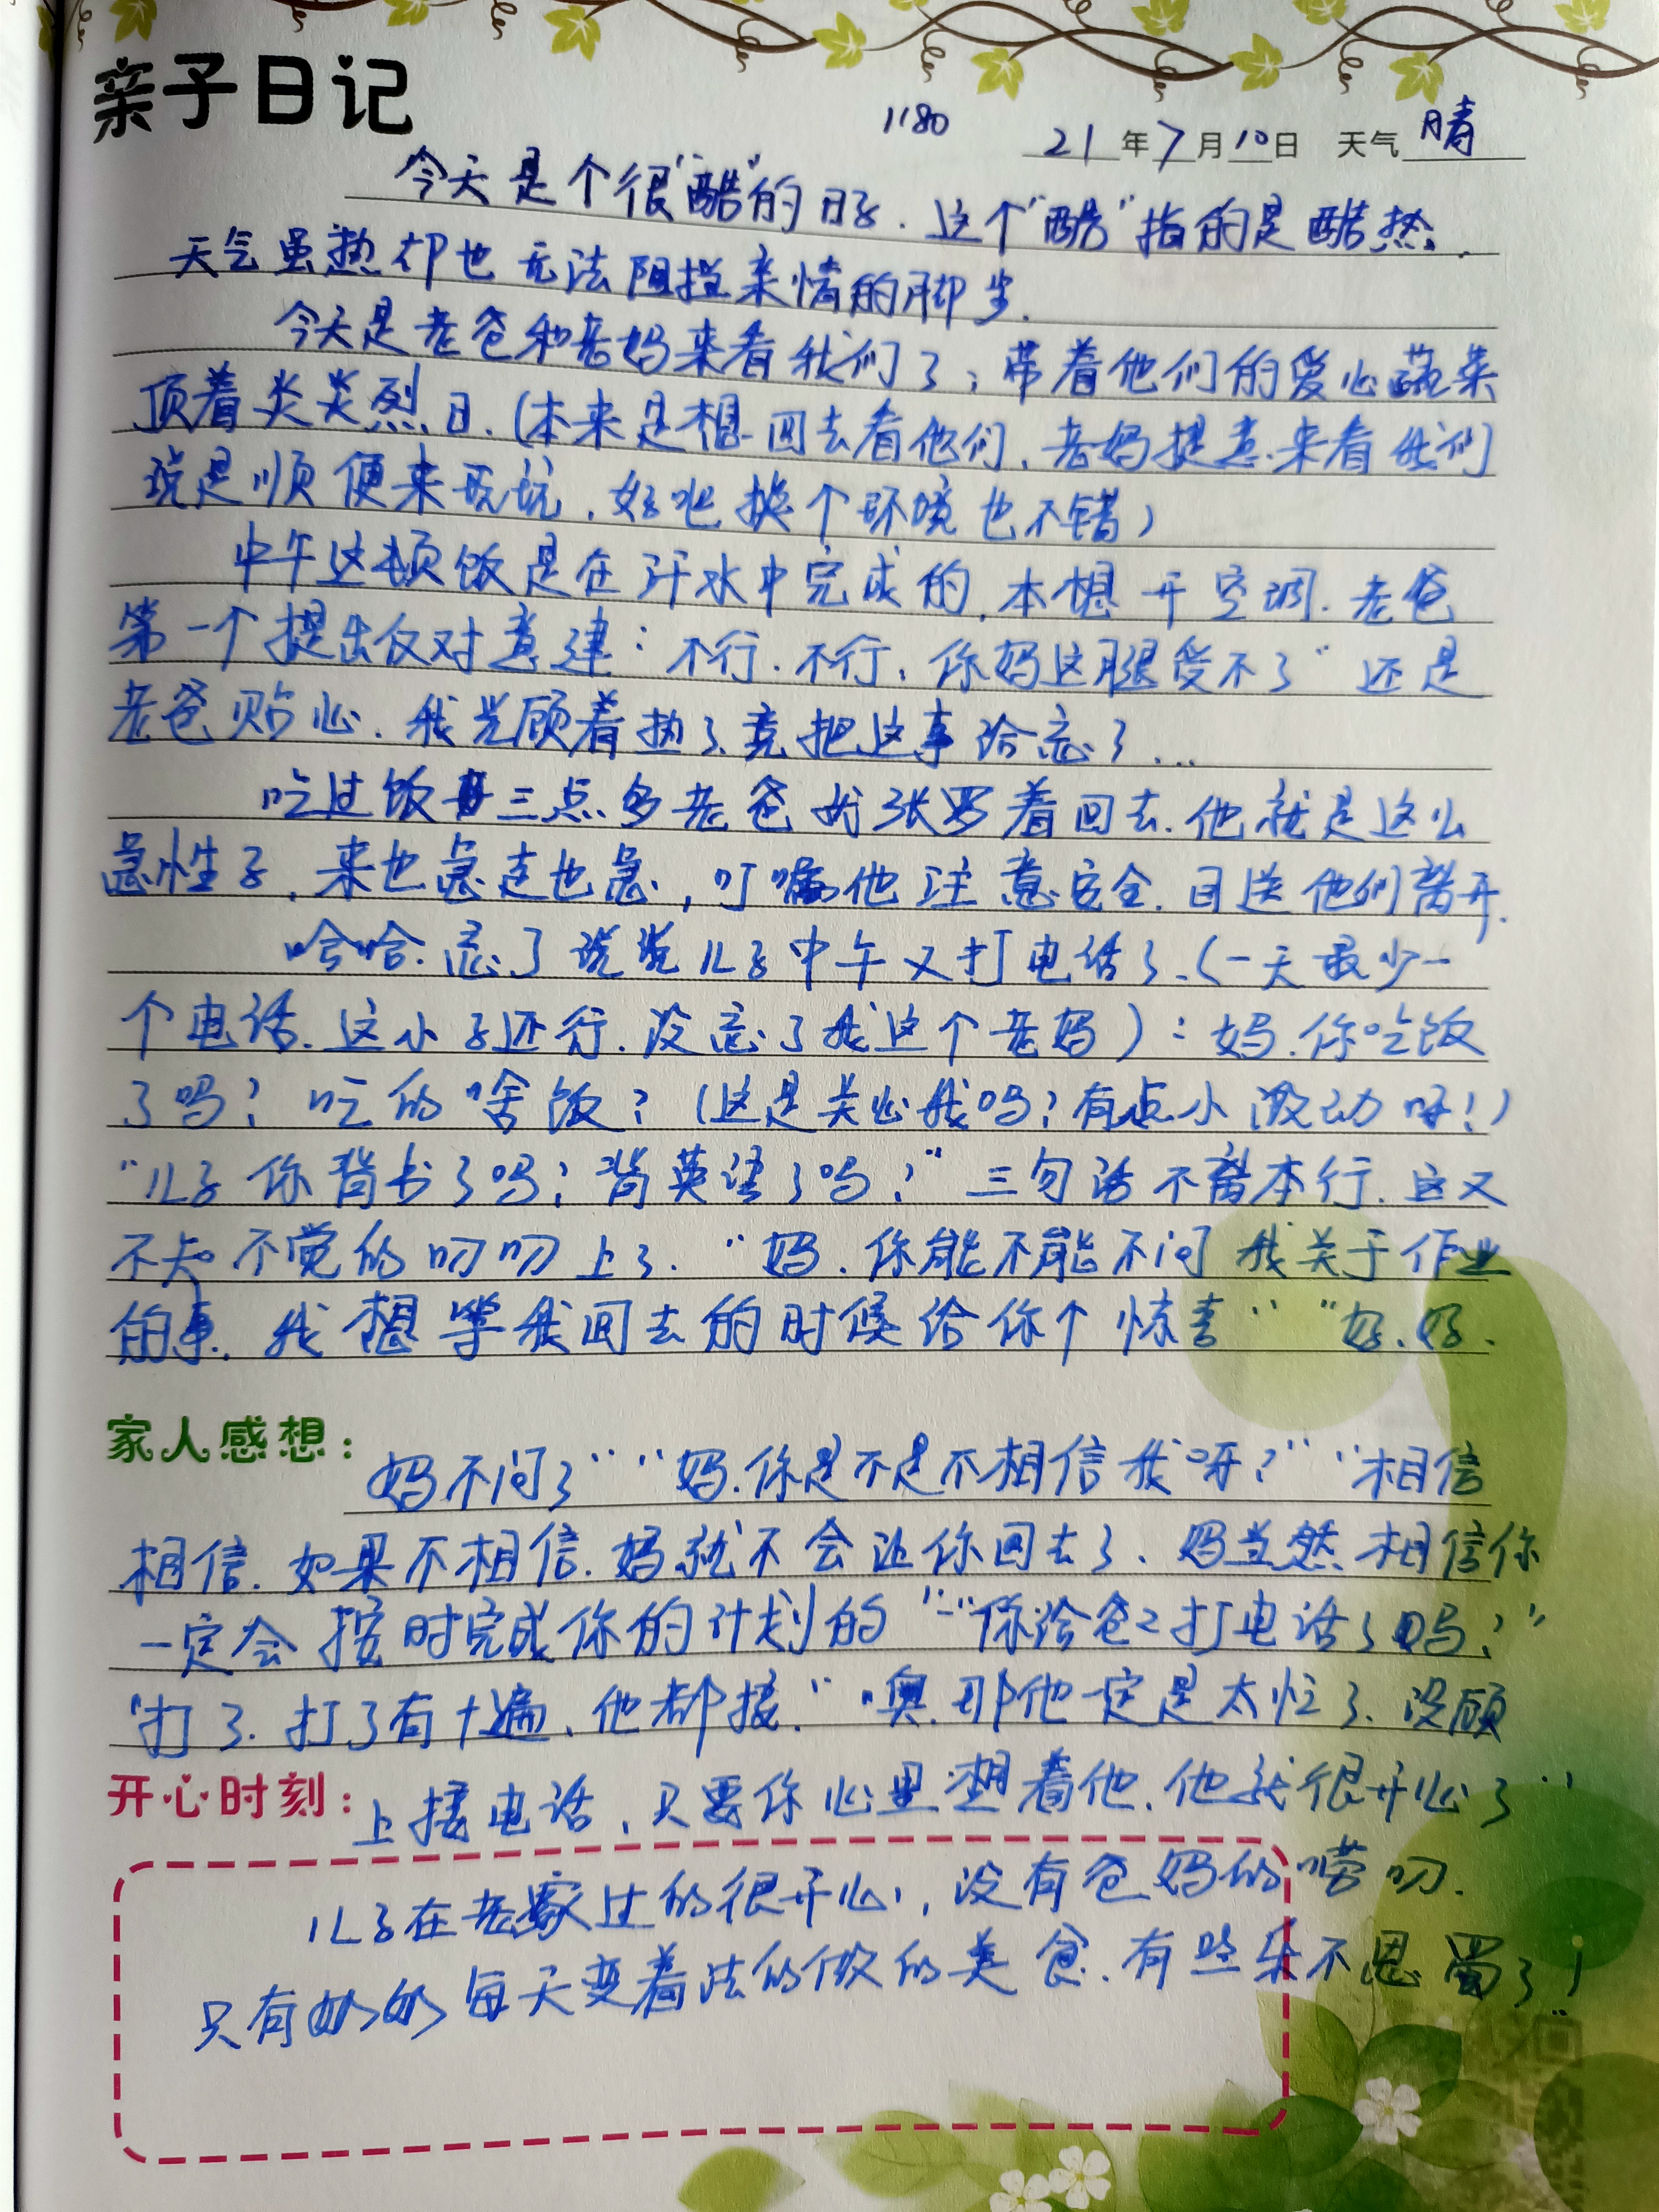 亲子日记
1180
21年7月10日 天气 晴
今天是个很"酷"的日子.这个"酷"指的是酷热.
天气虽热却也无法阻挡亲情的脚步.
今天是老爸和老妈来看我们了,带着他们的爱心蔬菜
顶着炎炎烈日.(本来是想回去看他们,老妈提意来看我们
说是顺便来玩玩,好吧换个环境也不错)
中午这顿饭是在汗水中完成的,本想开空调.老爸
第一个提出反对意建:不行.不行,你妈这腿受不了"还是
老爸贴心.我光顾着热了竟把这事给忘了...
吃过饭三点多老爸就张罗着回去.他就是这么
急性子,来也急走也急,叮嘱他注意安全.目送他们离开.
哈哈.忘了说说儿子中午又打电话了.(一天最少一
个电话.这小子还行.没忘了我这个老妈):妈.你吃饭
了吗?吃的啥饭?(这是关心我吗?有点小激动呀!)
"儿子你背书了吗?背英语了吗?"三句话不离本行.这又
不知不觉的叨叨上了."妈.你能不能不问我关于作业
的事.我想等我回去的时候给你个惊喜""好.好.
家人感想:
妈不问了""妈.你是不是不相信我呀?""相信
相信.如果不相信.妈就不会让你回去了.妈当然相信你
一定会按时完成你的计划的""你给爸爸打电话了吗?"
"打了.打了有十遍、他都接.""噢.那他一定是太忙了.没顾
开心时刻:
上接电话,只要你心里想着他.他就很开心了"
儿子在老家过的很开心,没有爸妈的唠叨.
只有奶奶每天变着法的做的美食.有些乐不思蜀了!